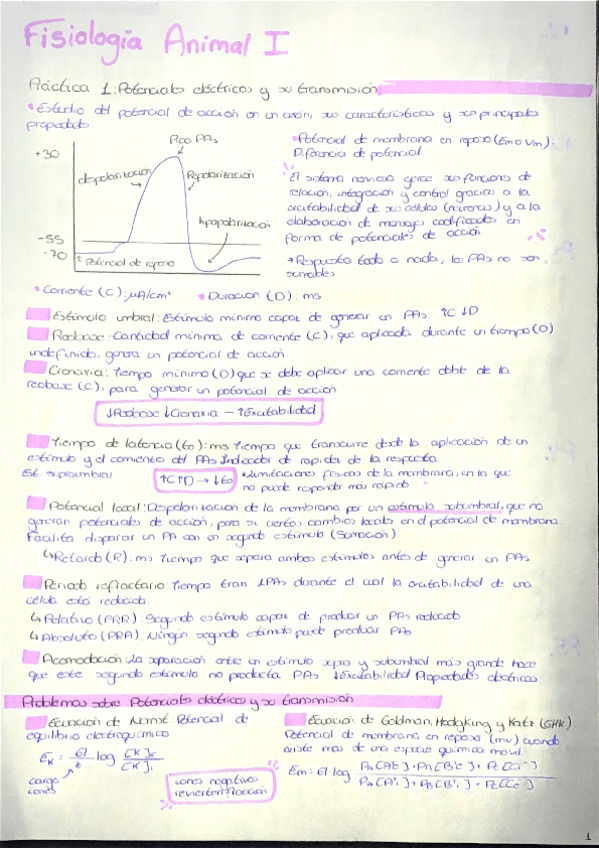 Fisiología Animal I
Práctica 1: Potenciales eléctricos y su transmisión
• Estudio del potencial de acción en un axón, sus características y sus principales
propiedades
Pico PAs
+30
despolarización
Repolarización
hiperpolarización
-55
-70
↑ Potencial de reposo
• Potencial de membrana en reposo (Em o Vm):
Diferencia de potencial
El sistema nervioso ejerce sus funciones de
relación, integración y control gracias a la
excitabilidad de sus células (neuronas) y a la
elaboración de mensajes codificados en
forma de potenciales de acción
→ Respuesta todo o nada, los PAs no son
sumables
• Corriente (C): µA/cm²
• Duración (D): ms
Estímulo umbral: Estímulo mínimo capaz de generar un PAs ↑C ↓D
Reobase: Cantidad mínima de corriente (C), que aplicada durante un tiempo (D)
indefinido, genera un potencial de acción
Cronaxia: Tiempo mínimo (D) que se debe aplicar una corriente doble de la
reobase (C), para generar un potencial de acción
↓Reobase ↓Cronaxia → ↑Excitabilidad
Tiempo de latencia (to): ms Tiempo que transcurre desde la aplicación de un
estímulo y el comienzo del PAs Indicador de rapidez de la respuesta
Est. supraumbral
↑C↑D → ↓to
• Limitaciones físicas de la membrana, en la que
no puede responder más rápido
Potencial local: Despolarización de la membrana por un estímulo subumbral, que no
generan potenciales de acción, pero si ciertos cambios locales en el potencial de membrana.
Facilita disparar un PA con un segundo estímulo (Sumación)
↳ Retardo (R): ms Tiempo que separa ambos estímulos antes de generar un PAs
Período refractario Tiempo tras ↓PAs durante el cual la excitabilidad de una
célula está reducida.
↳ Relativo (PRR): Segundo estímulo capaz de producir un PAs reducido
↳ Absoluto (PRA): Ningún segundo estímulo puede producir PAs
Acomodación: La separación entre un estímulo supra y subumbral más grande hace
que este segundo estímulo no producta PAs ↓Excitabilidad Propiedades eléctricas
Problemas sobre Potenciales eléctricos y su transmisión
Ecuación de Nernst: Potencial de
equilibrio electroquímico
E_K = 61/z log [K]e/[K]i
carga
iones
iones negativos
revierten fracción
Ecuación de Goldman, Hodgking y Katz (GHK):
Potencial de membrana en reposo (mv) cuando
existe más de una especie química móvil.
1